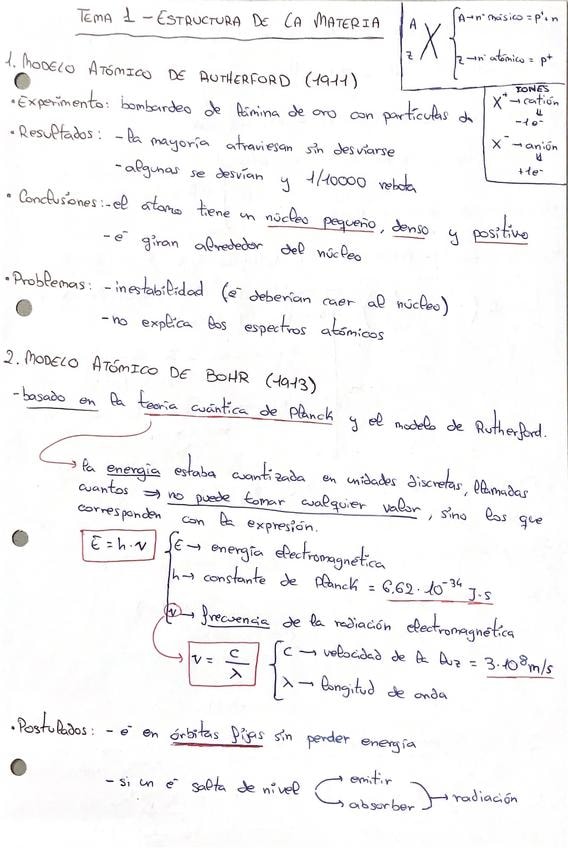 TEMA 1 - ESTRUCTURA DE LA MATERIA
A
Z X
A → nº másico = p⁺ + n
Z → nº atómico = p⁺
IONES
X⁺ → catión
⇓
-1e⁻
X⁻ → anión
⇓
+1e⁻
1. MODELO ATÓMICO DE RUTHERFORD (1911)
• Experimento: bombardeo de lámina de oro con partículas α
• Resultados: - la mayoría atraviesan sin desviarse
- algunas se desvían y 1/10000 rebota
• Conclusiones: - el átomo tiene un núcleo pequeño, denso y positivo
- e⁻ giran alrededor del núcleo
• Problemas: - inestabilidad (e⁻ deberían caer al núcleo)
- no explica los espectros atómicos
2. MODELO ATÓMICO DE BOHR (1913)
- basado en la teoría cuántica de Planck y el modelo de Rutherford.
→ la energía estaba cuantizada en unidades discretas, llamadas
cuantos ⇒ no puede tomar cualquier valor, sino los que
corresponden con la expresión.
E = h · ν
E → energía electromagnética
h → constante de Planck = 6,62 · 10⁻³⁴ J·s
ν → frecuencia de la radiación electromagnética
ν = c / λ
c → velocidad de la luz = 3 · 10⁸ m/s
λ → longitud de onda
• Postulados: - e⁻ en órbitas fijas sin perder energía
- si un e⁻ salta de nivel → emitir
→ absorber → radiación